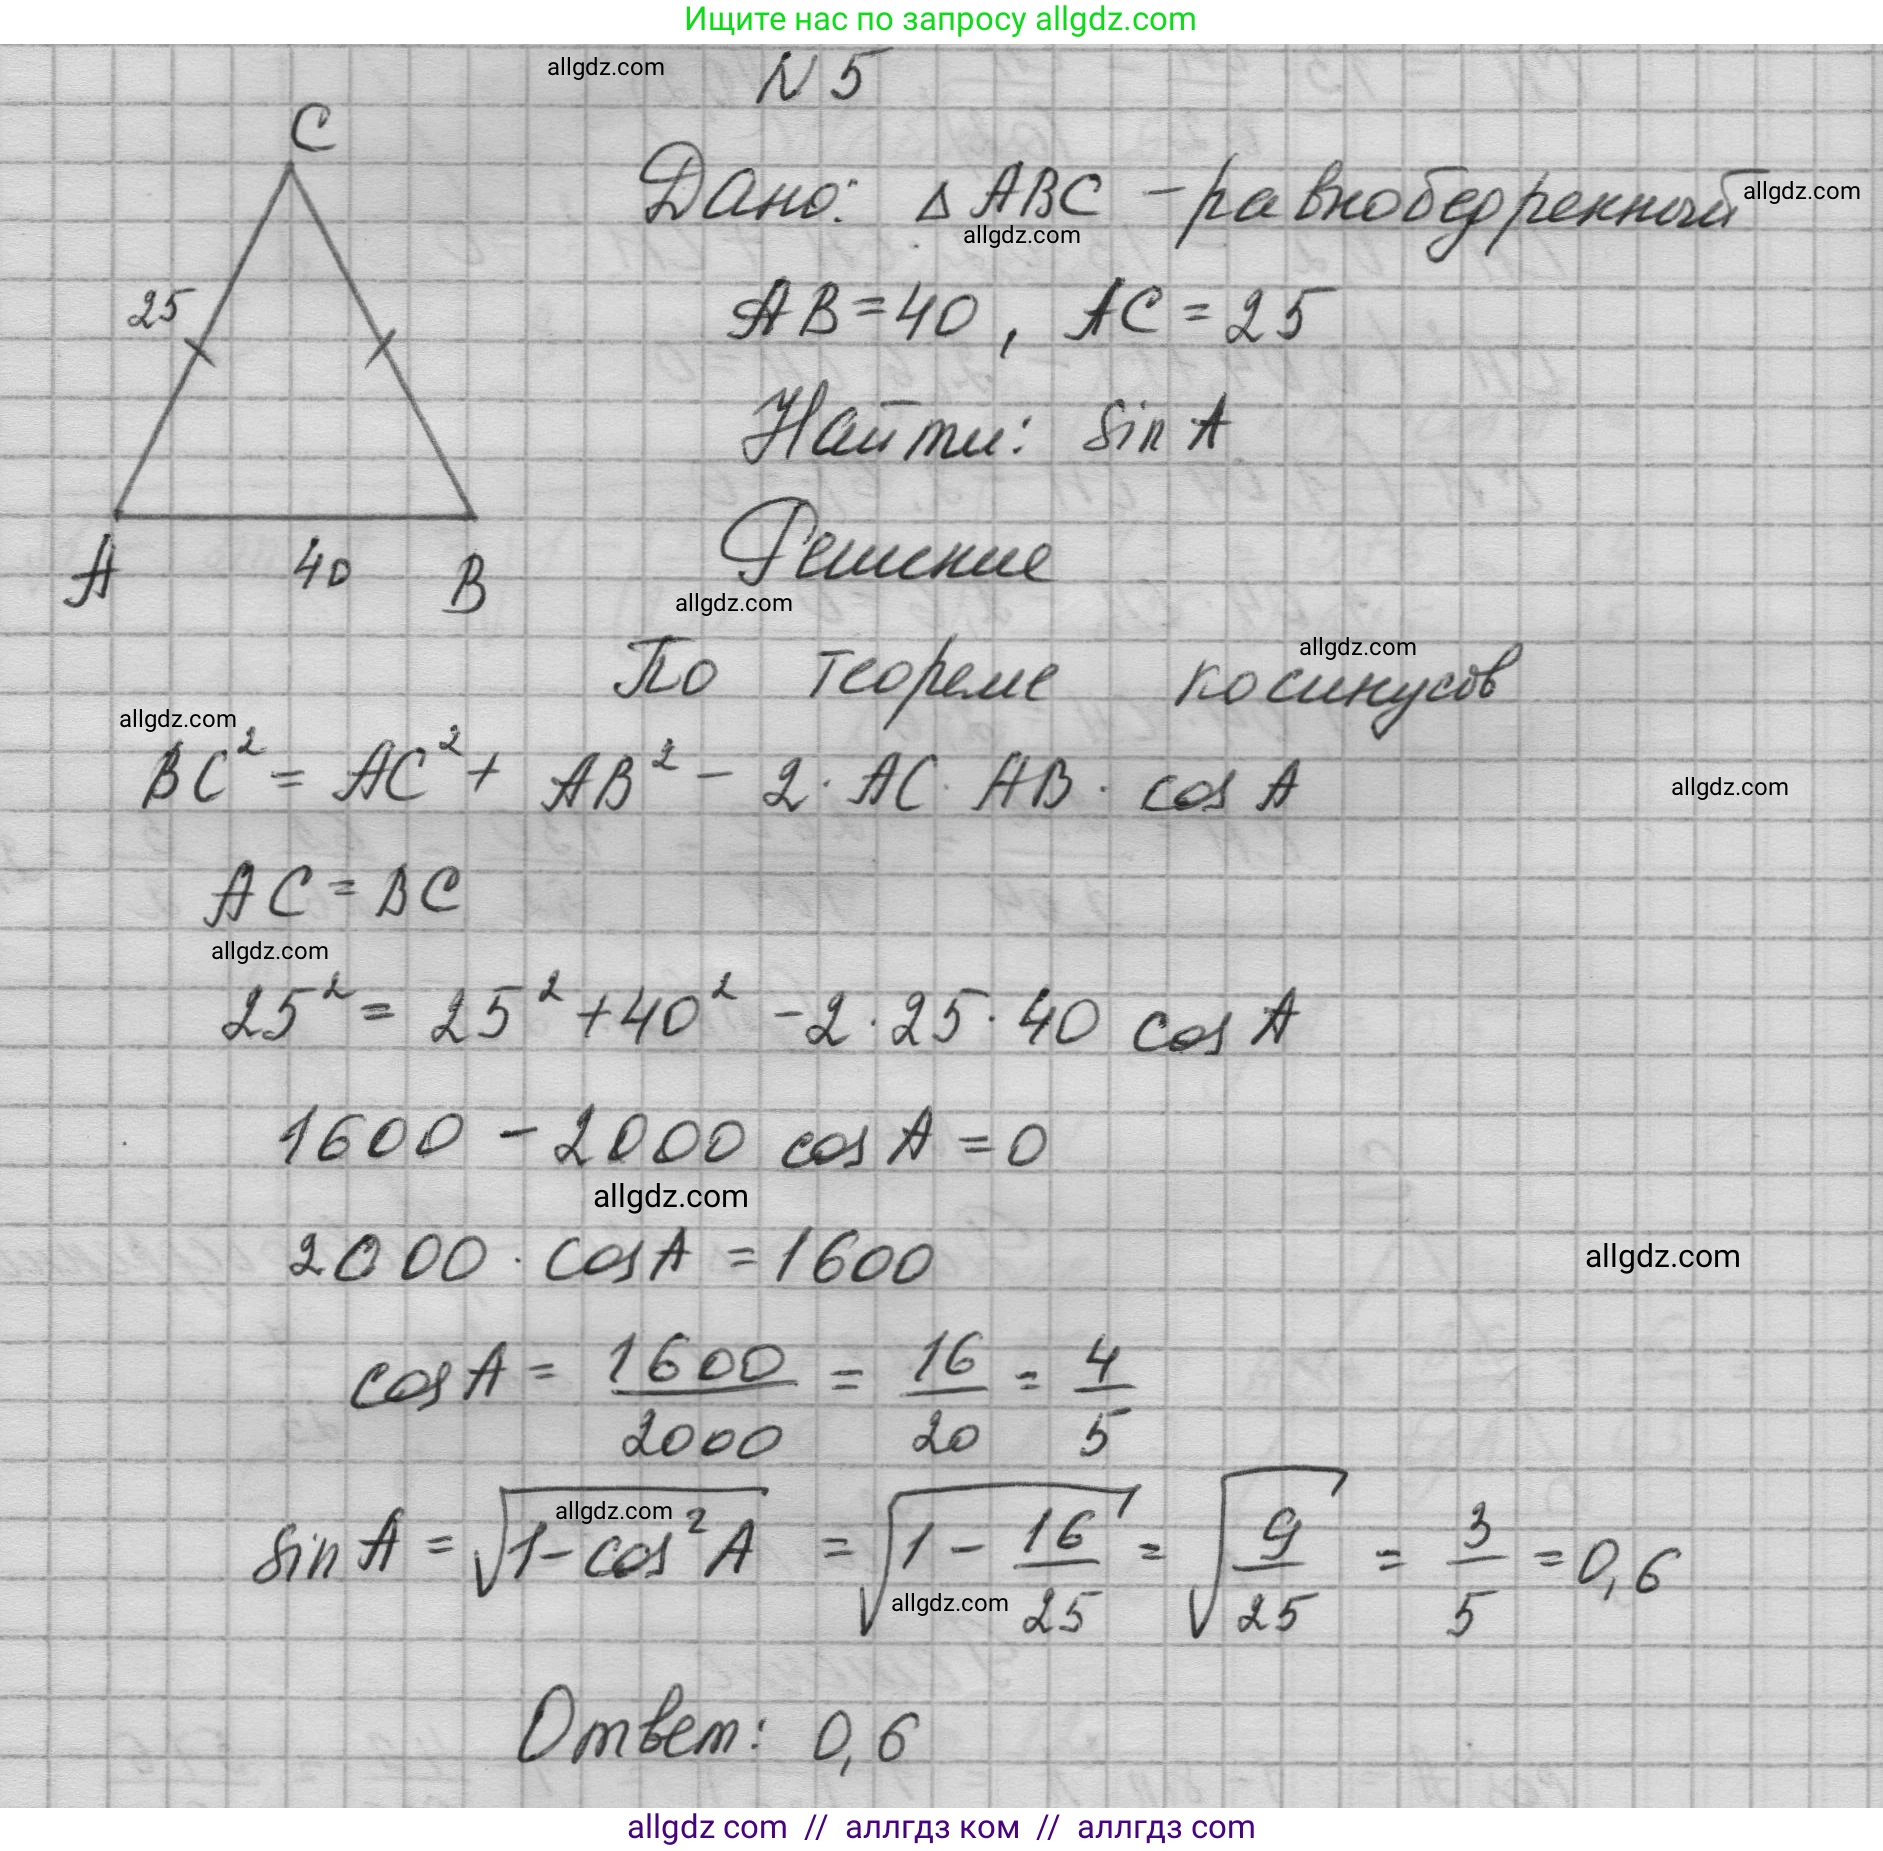 Ищите нас по запросу allgdz.com
allgdz.com
N 5
C
Дано: △ ABC – равнобедренный
allgdz.com
allgdz.com
25
AB = 40 , AC = 25
Найти: sin A
A 40 B
Решение
allgdz.com
По теореме косинусов
allgdz.com
allgdz.com
BC² = AC² + AB² – 2 · AC · AB · cos A
allgdz.com
AC = BC
allgdz.com
25² = 25² + 40² – 2 · 25 · 40 cos A
1600 – 2000 cos A = 0
allgdz.com
2000 · cos A = 1600
allgdz.com
cos A = 1600/2000 = 16/20 = 4/5
sin A = √(1 – cos² A) = √(1 – 16/25) = √(9/25) = 3/5 = 0,6
allgdz.com
allgdz.com
Ответ: 0,6
allgdz com // аллгдз ком // аллгдз com